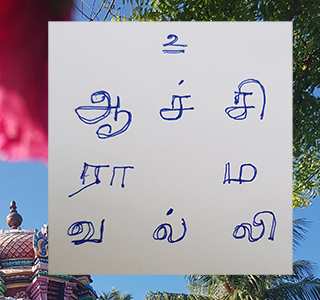 உ
ஆ ச் சி
ரா ம
வ ல் லி